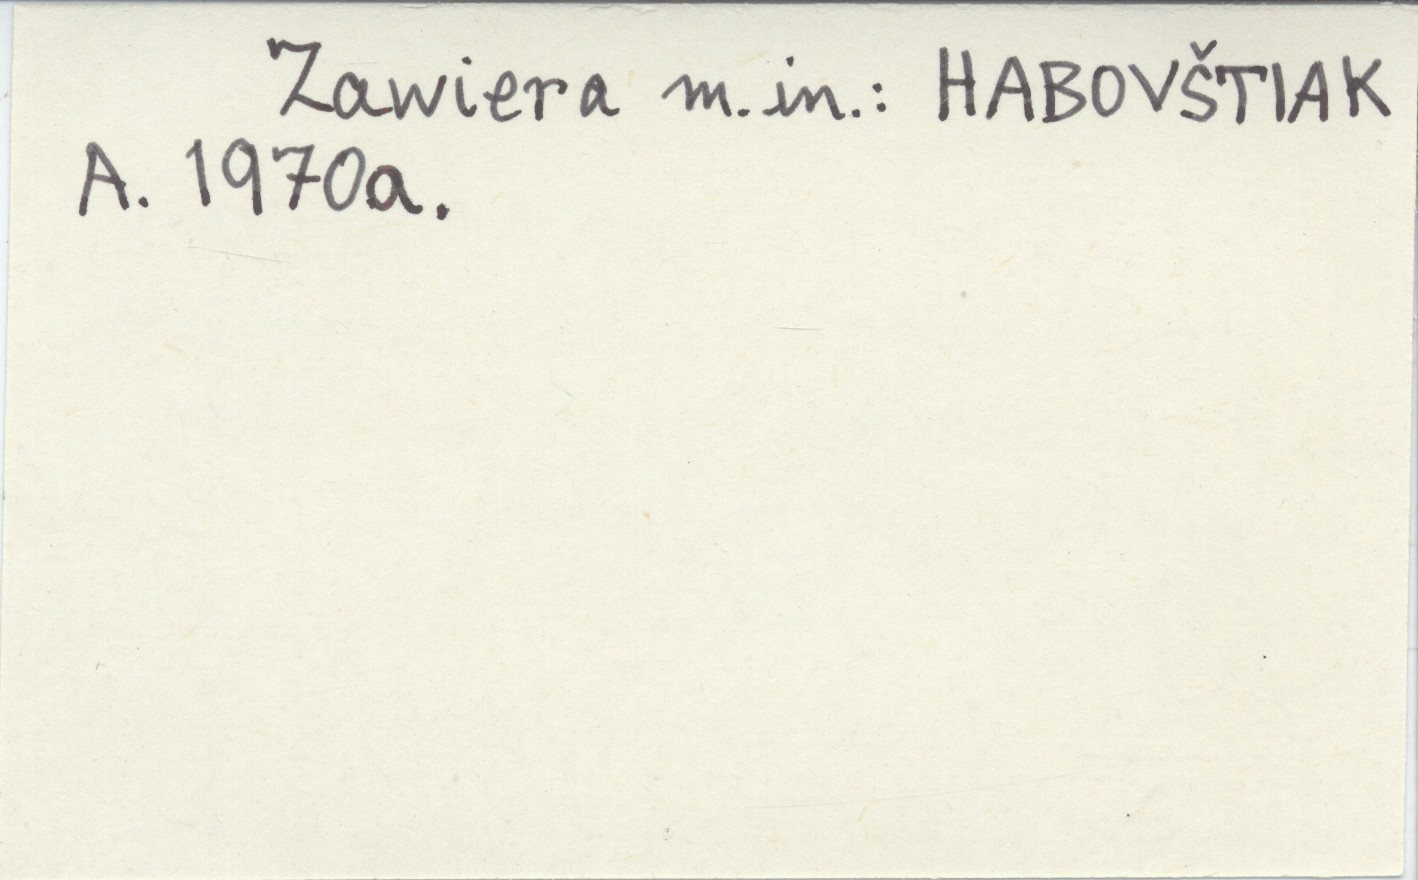 Zawiera m.in.: HABOVŠTIAK
A. 1970a.